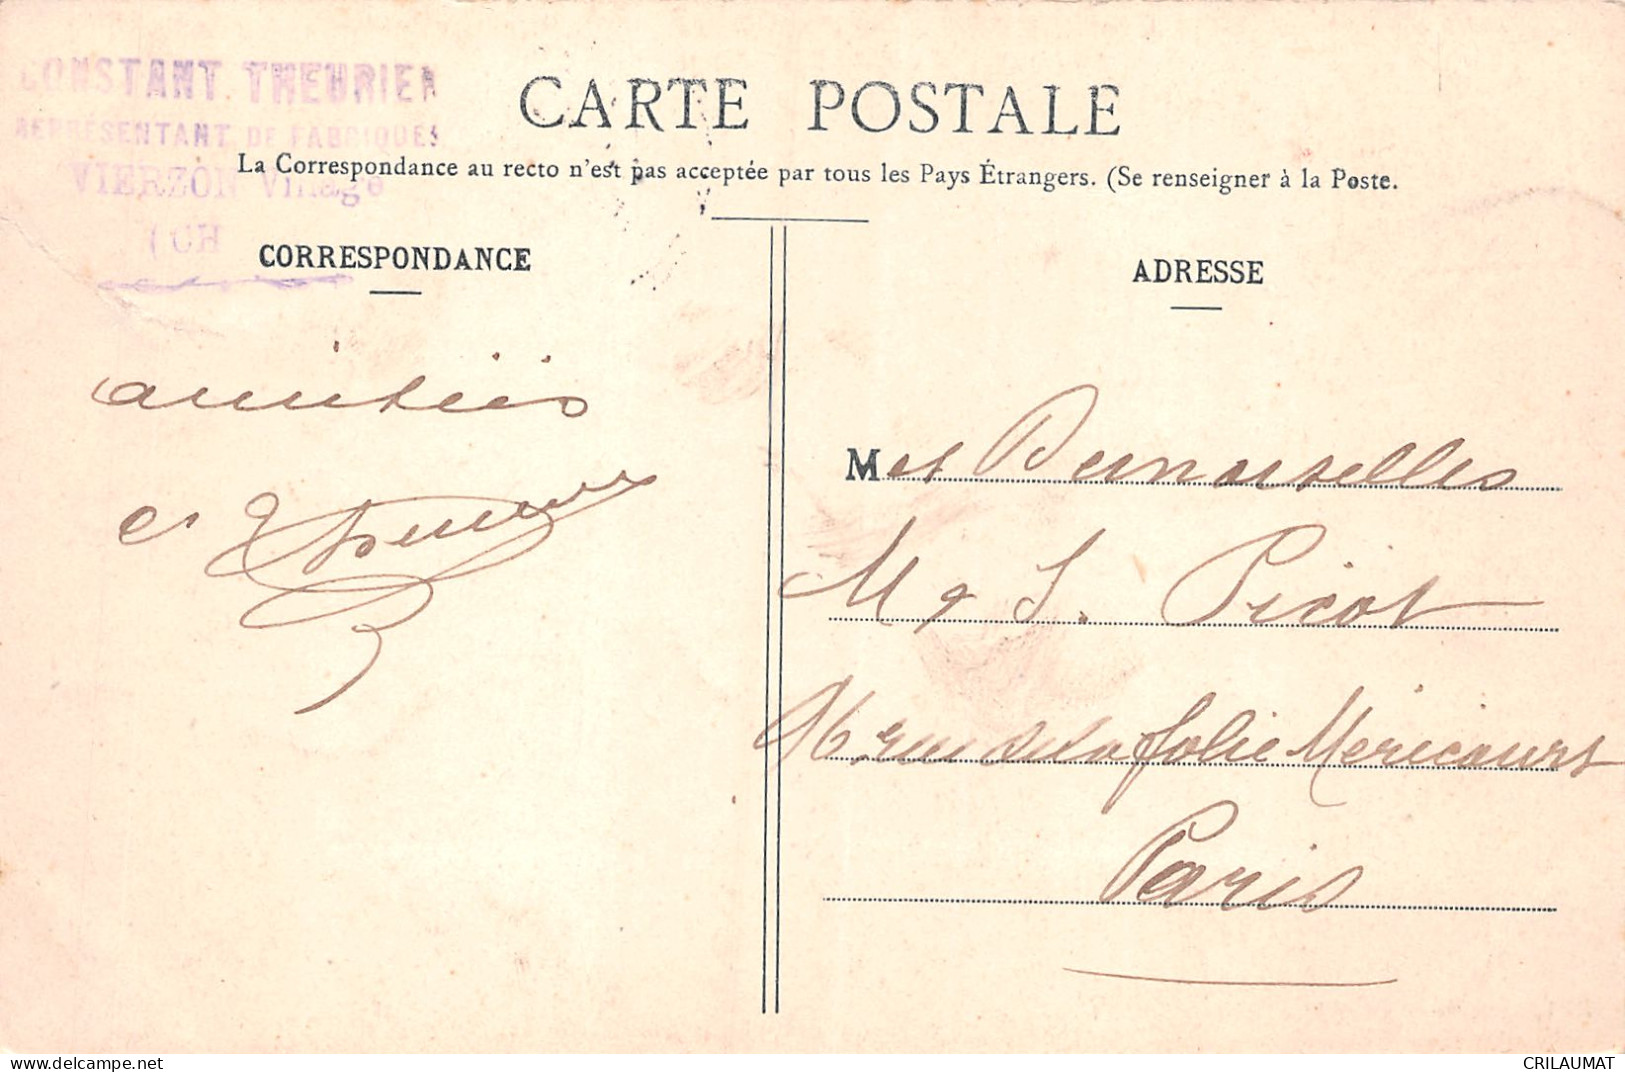 CONSTANT THEURIER
REPRÉSENTANT DE FABRIQUES
VIERZON Village
(CH
CARTE POSTALE
La Correspondance au recto n'est pas acceptée par tous les Pays Étrangers. (Se renseigner à la Poste.
CORRESPONDANCE
amitiés
C Theurier
ADRESSE
Mes Demoiselles
M & J. Picot
96 rue de la folie Mericourt
Paris
www.delcampe.net
CRILAUMAT